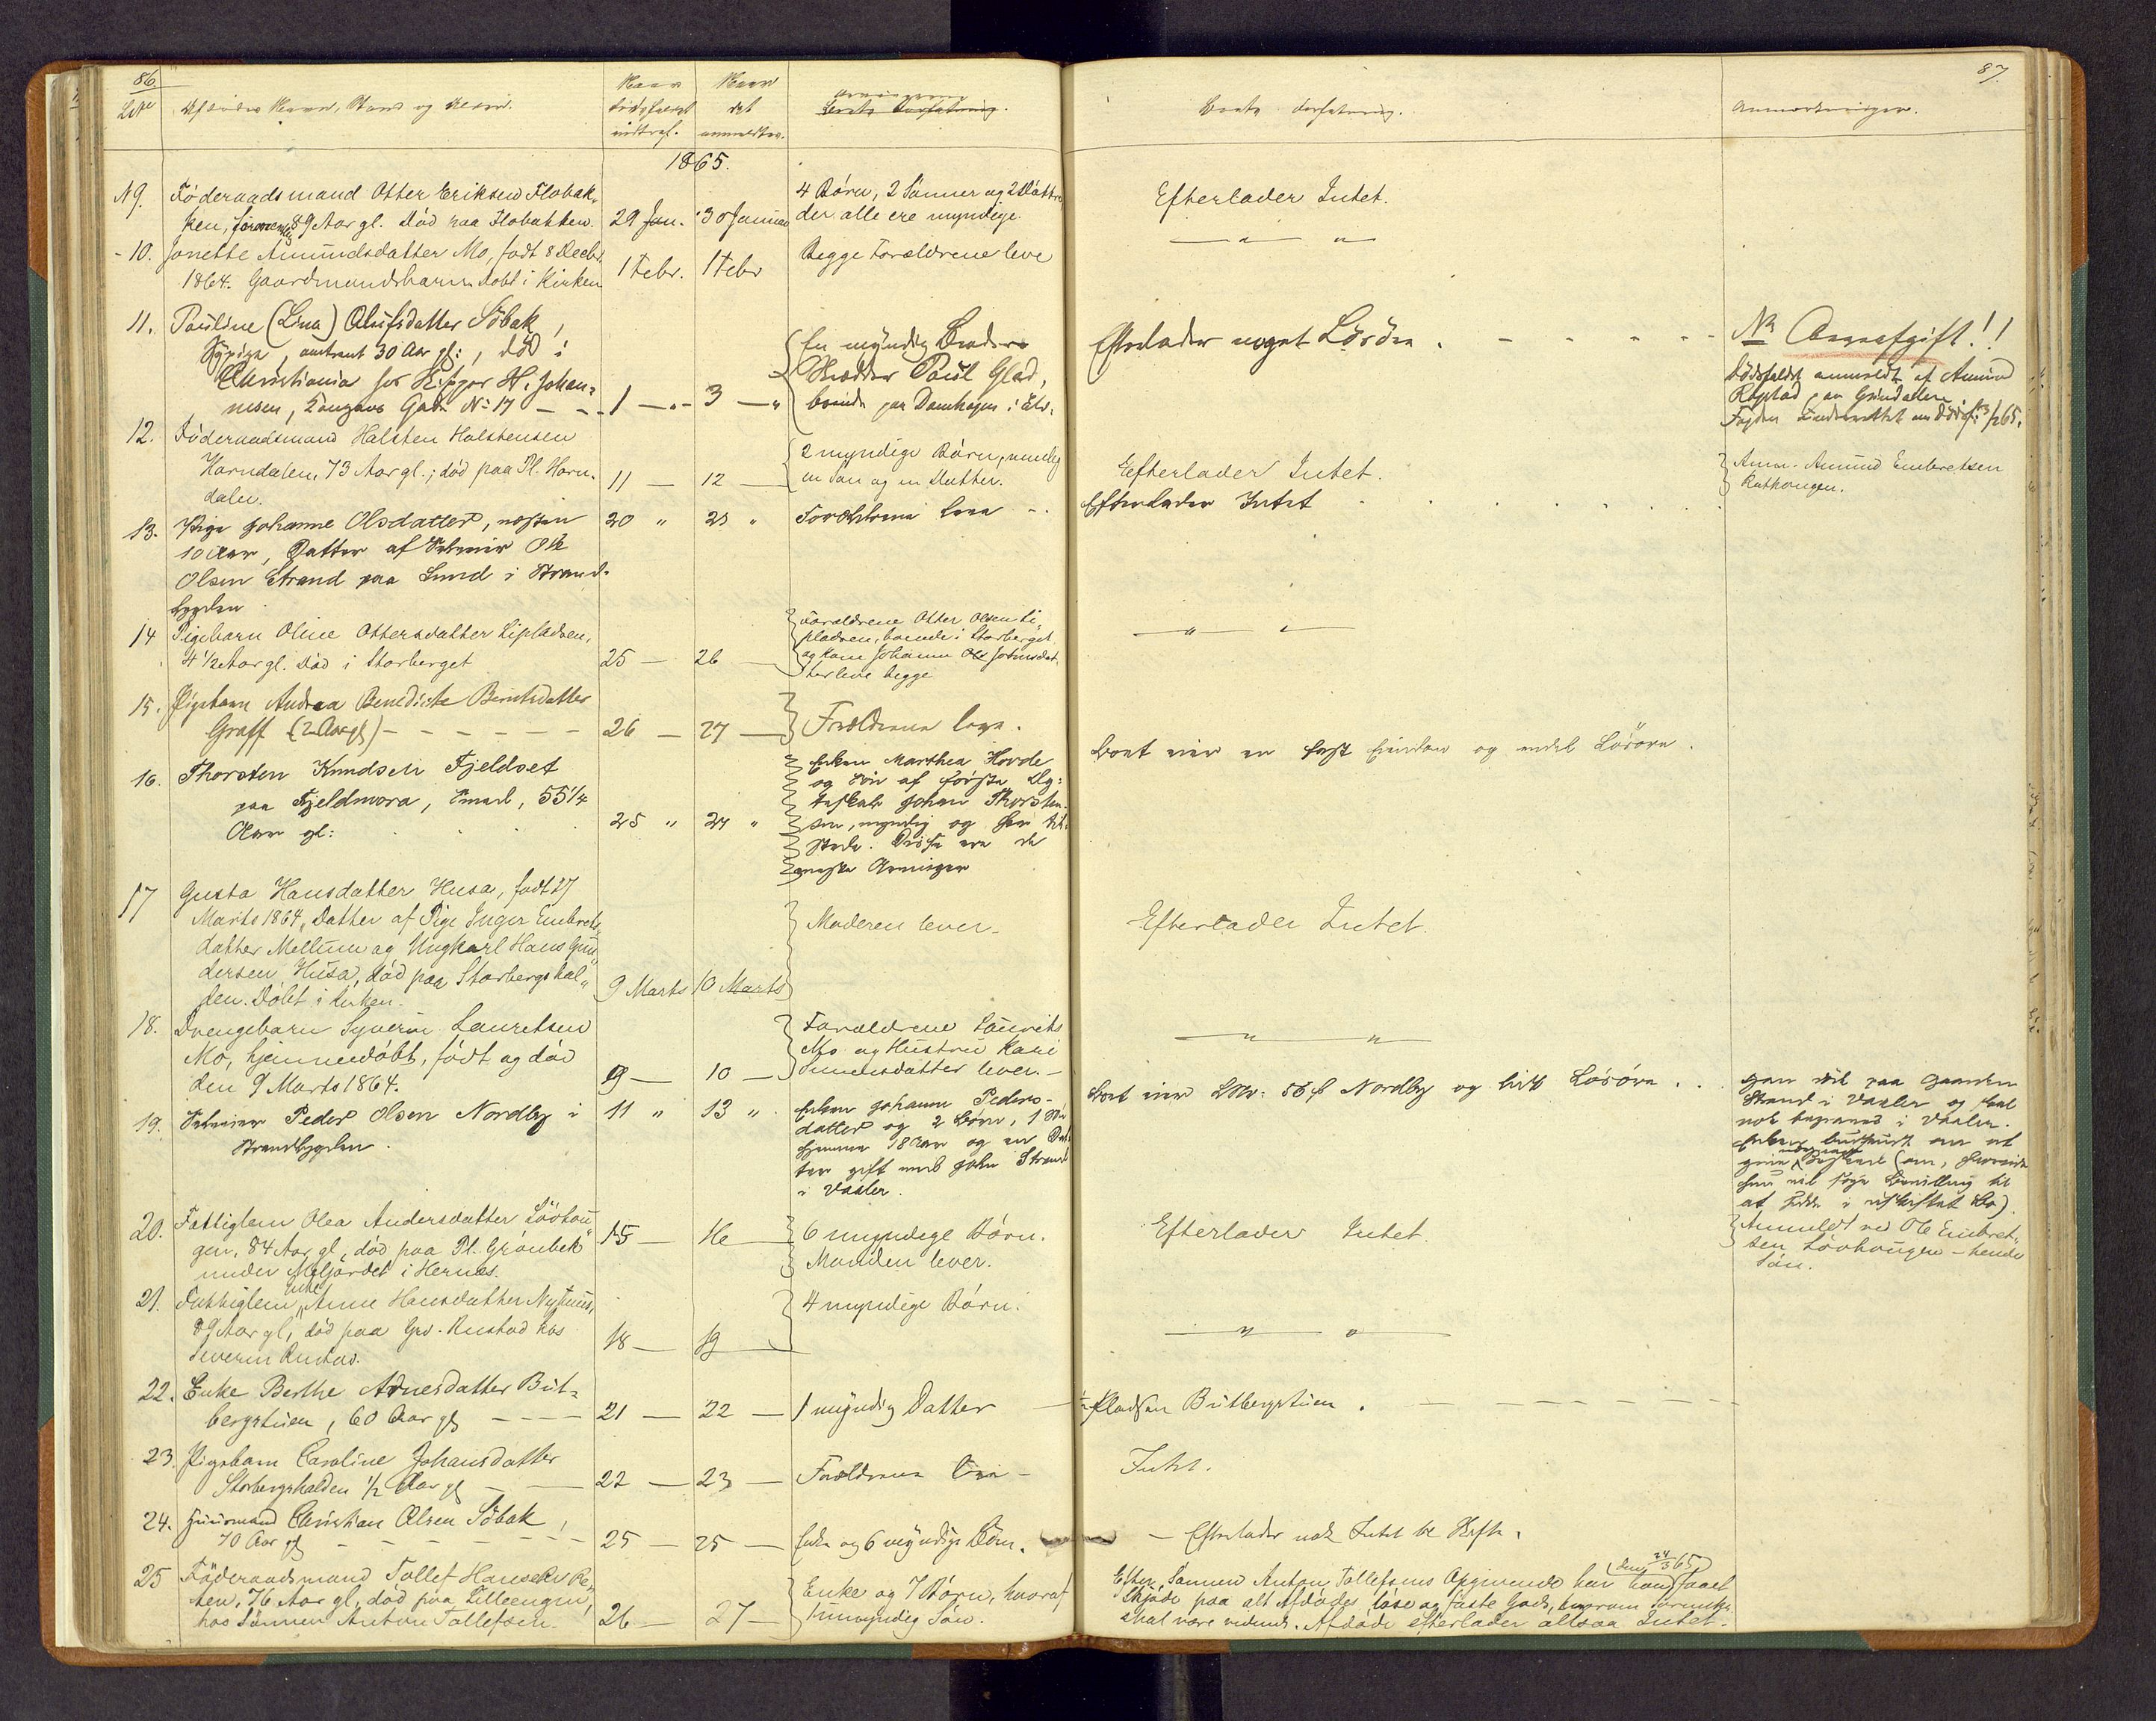 86
87.
Afdødes Navn, Stand og
Naar
Dødsfaldet
indtraf.
Naar
det
anmeldtes.
Arvingerne
Boets Forfatning.
Boets Forfatning.
Anmærkninger.
1865.
N 9. Föderaadsmand Otter Eriksen Flobak-
ken, 89 Aar gl. Død paa Flobakken. 29 Jan. 30 Januar
4 Börn, 2 Sönner og 2 Döttre,
der alle ere myndige
Efterlader Intet.
10. Jonette Amundsdatter Mo, født 8 Decbr.
1864. Gaardmandsbarn. Døbt i Kirken 1 Febr. 1 Febr
Begge Forældrene leve
— " — " —
11. Pauline (Lina) Olufsdatter Söbak,
Pige, omtrent 30 Aar gl:, död i
Christiania hos H. Johan-
nesen, Gade No 17 — 1 — " 3 — "
En myndig Broder
Skrædder Paul Glad,
boende paa Damhagen i Elv.
Efterlader noget Lösöre. - - - - -
NB Arveafgift!!
Dødsfaldet anmeldt af Amund
12. Föderaadsmand Halsten Halstensen
Horndalen, 73 Aar gl.; död paa Pl. Horn-
dalen. 11 — 12 —
2 myndige Börn, nemlig
en Sön og en Datter.
Efterlader Intet.
Anm. Amund Embretsen
13. Pige Johanne Olsdatter, næsten
10 Aar, Datter af Ole
Olsen Strand paa Lund i Strand-
bygden 20 " 23 "
Forældrene leve
Efterlader Intet
14 Pigebarn Oline Ottersdatter Lipladsen,
4 1/2 Aar gl. Död i Storberget 25 — 26 —
Forældrene Otter Olsen Li-
pladsen, boende i Storberget
og Kone Johanne Johnsdat-
ter leve begge
— " — " —
15. Pigebarn Andrea Benedicte Berntsdatter
Graff (2 Aar gl) - - - - - - 26 — 27 —
Forældrene leve.
16. Thorsten Knudsen Fjeldset
paa Fjeldmora, 55 1/4
Aar gl: 25 " 27 "
Enken Marthea Hovde
og Sön af første Æg-
teskab Johan Thorsten-
sen, myndig og
. Disse ere de
eneste Arvinger
Boet eier en og endel Lösöre.
17 Gusta Hansdatter Husa, født 27
Marts 1864, Datter af Pige Inger Embrets-
datter Mellum og Ungkarl Hans Gun-
dersen Husa, död paa Storbergshal-
den. Döbt i Kirken. 9 Marts 10 Marts
Moderen lever.
Efterlader Intet.
18. Drengebarn Syverin Lauretsen
Mo, hjemmedöbt, födt og död
den 9 Marts 1864. 9 — 10 —
Forældrene Laurits
Mo og Hustru Kari
Simensdatter lever.
— " — " —
19. Peder Olsen Nordby i
Strandbygden. 11 " 13 "
Enken Johanne Peders-
datter og 2 Börn, 1 Sön
hjemme 18 Aar og en Dat-
ter gift med John Strand
i Vaaler.
Boet eier Nordby og lidt Lösöre.
Han död paa Gaarden
Strand i Vaaler og skal
nok begraves i Vaaler.
20. Fattiglem Olea Andersdatter Lövhau-
gen, 84 Aar gl, död paa Pl. Grönbek
under Melgårdet i Hernæs. 15 — 16 —
6 myndige Börn.
Manden lever.
Efterlader Intet.
Anmeldt ved Ole Embret-
sen Lövhaugen - hendes
Sön.
21. Fattiglem Enke Anne Hansdatter Nyhuus,
89 Aar gl, död paa Grd. Rustad hos
Severin Rustad. 18 — 19 —
4 myndige Börn.
— " — " —
22. Enke Berthe Arnesdatter But-
bergstuen, 60 Aar gl - - - - 21 — 22 —
1 myndig Datter
Pladsen Butbergstuen.
23. Pigebarn Caroline Johansdatter
Storbergshalden 1/2 Aar gl 22 — 23 —
Forældrene leve -
Intet.
24. Huusmand Christian Olsen Söbak,
70 Aar gl - - - - - - 25 — 25 —
Enke og 6 myndige Börn.
- Efterlader nok Intet til Skifte.
25 Föderaadsmand Tollef Hansen
76 Aar gl, död paa Lilleengen,
hos Sönnen Anton Tollefsen. 26 — 27 —
Enke og 7 Börn, hvoraf
1 umyndig Sön.
Efter Sönnen Anton Tollefsens Opgivende har han (den 24/3 65) faaet
Skjöde paa alt Afdödes löse og faste Gods, hvorom
skal være vidende. Afdöde efterlader altsaa Intet.